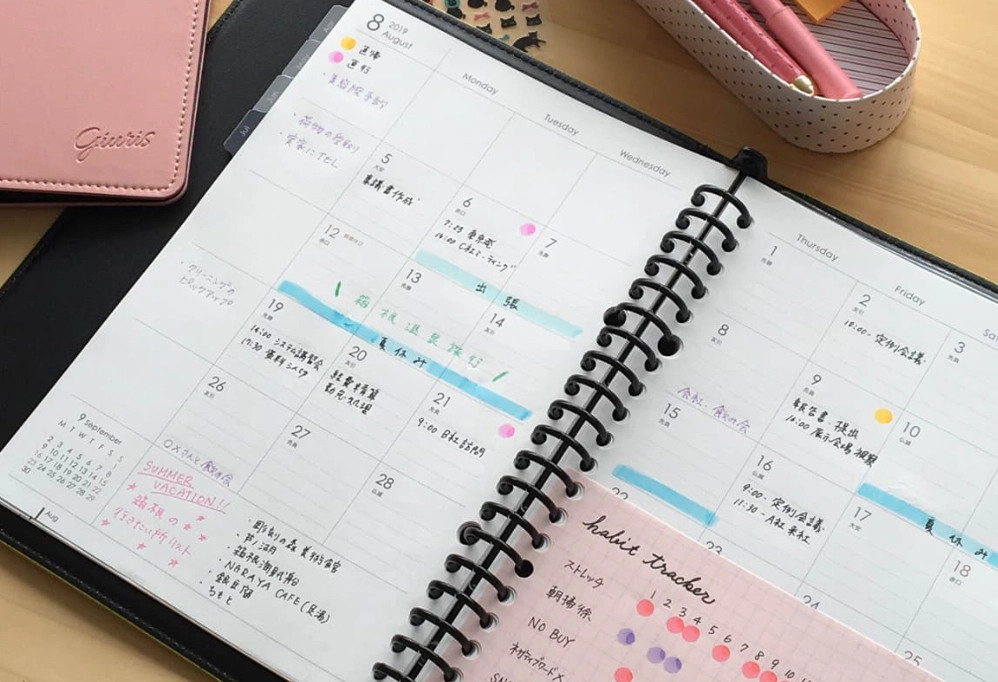 Giuris
Jul
8
2019
August
直帰
直行
・美容院予約
・荷物の受取り
・実家にTEL
・クリーニングの
ピックアップ
Monday
Tuesday
Wednesday
5
6
7
9:25
16:00 C社ミーティング
12
13
14
出張
箱根温泉旅行
19
20
21
夏休み
14:00 システム講習会
17:30
経費精算
9:00 B社訪問
26
27
28
9 September
M T W T F S S
1
2 3 4 5 6 7 8
9 10 11 12 13 14 15
16 17 18 19 20 21 22
23 24 25 26 27 28 29
30
Aug
SUMMER
VACATION!!
箱根の
行きたい所リスト
・彫刻の森美術館
・芦ノ湖
・NARAYA CAFE(足湯)
Thursday
Friday
1
2
3
10:00- 定例会議
8
9
10
報告書 提出
16:00 展示会場視察
15
16
17
18
9:00- 定例会議
11:30- A社来社
夏休み
22
23
24
25
habit tracker
1 2 3 4 5 6 7 8 9 10 11
ストレッチ
朝掃除
NO BUY
ネガティブワード×